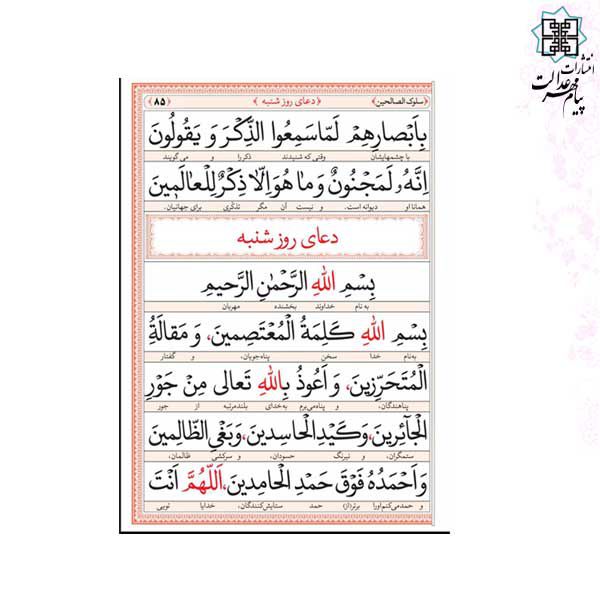 انتشارات
پیام مهر عدالت
﴿سلوک الصالحین﴾ ﴿دعای روز شنبه﴾ ﴿۸۵﴾
بِاَبْصارِهِمْ لَمّا سَمِعُوا الذِّكْرَ وَ يَقُولُونَ
با چشمهایشان وقتی که شنیدند ذکر را و می گویند
اِنَّهُ لَمَجْنُونٌ وَ ما هُوَ اِلّا ذِكْرٌ لِلْعالَمينَ
همانا او دیوانه است. و نیست آن مگر تذکّری برای جهانیان.
دعای روز شنبه
بِسْمِ اللهِ الرَّحْمٰنِ الرَّحيمِ
به نام خداوند بخشنده مهربان
بِسْمِ اللهِ كَلِمَةُ الْمُعْتَصِمينَ، وَ مَقالَةُ
به‌نام خدا سخن پناه‌جویان، و گفتار
الْمُتَحَرِّزينَ، وَ اَعُوذُ بِاللهِ تَعالى مِنْ جَوْرِ
پناهندگان، و پناه می‌برم به‌خدای بلندمرتبه از جور
الْجآئِرينَ، وَ كَيْدِ الْحاسِدينَ، وَ بَغْيِ الظّالِمينَ
ستمگران، و نیرنگ حسودان، و سرکشی ظالمان،
وَ اَحْمَدُهُ فَوْقَ حَمْدِ الْحامِدينَ، اَللّٰهُمَّ اَنْتَ
و حمدمی‌کنم‌اورا برتر(از) حمد ستایش‌کنندگان، خدایا تویی